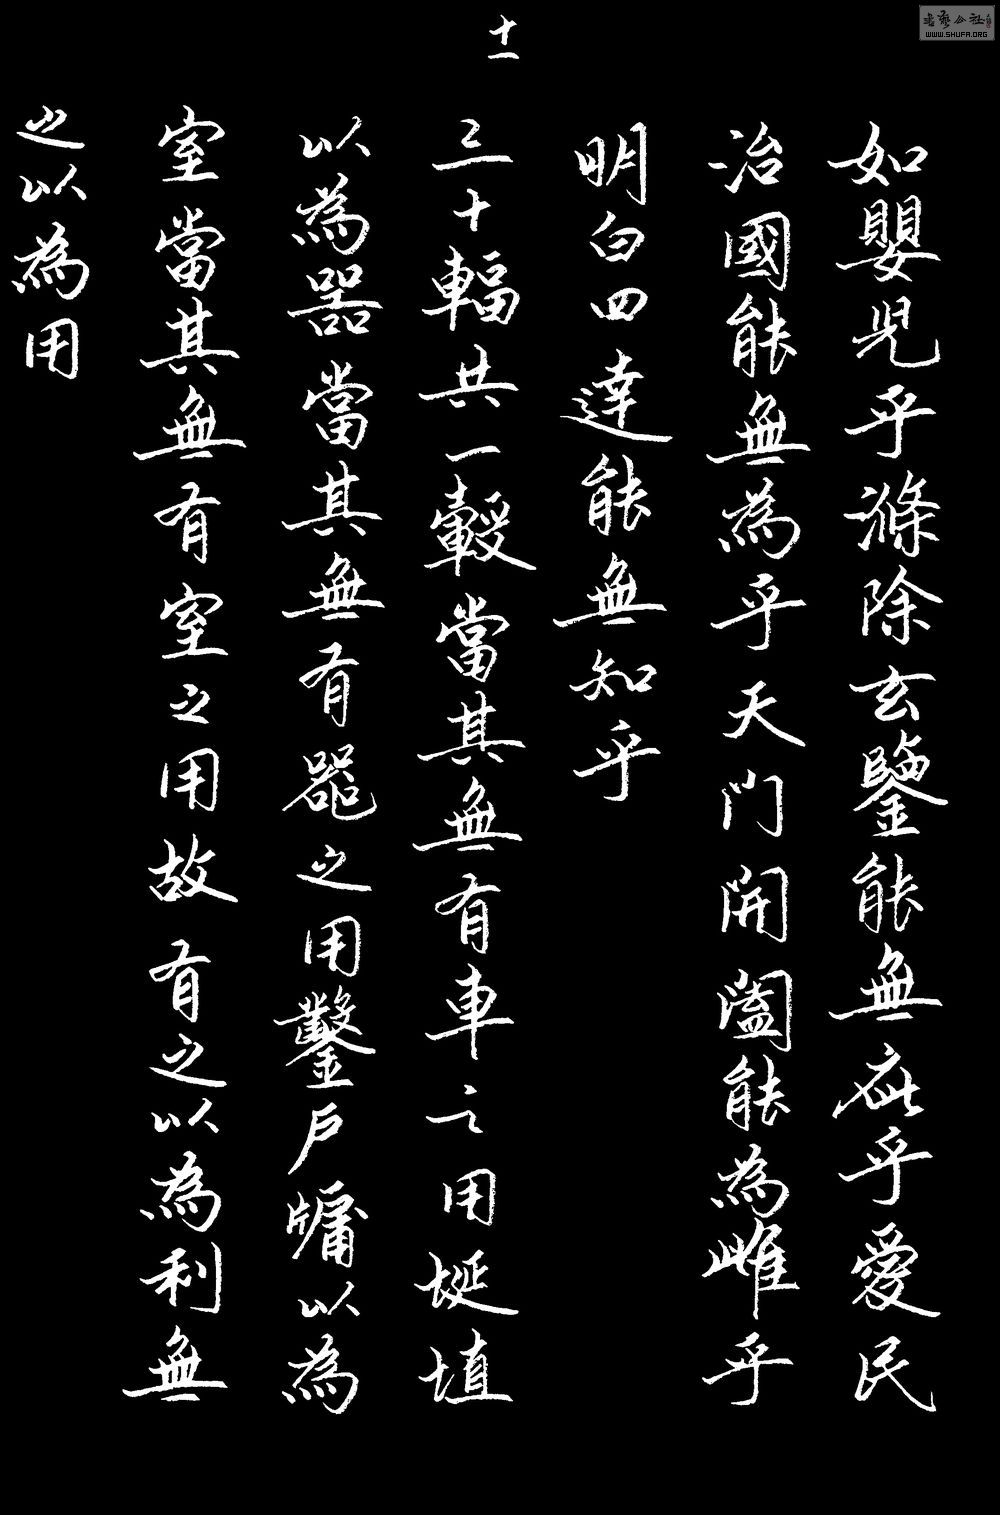 如嬰児乎滌除玄鑒能無疵乎愛民
治國能無為乎天門開闔能為雌乎
明白四達能無知乎
十一
三十輻共一轂當其無有車之用埏埴
以為器當其無有器之用鑿戶牖以為
室當其無有室之用故有之以為利無
之以為用
WWW.SHUFA.ORG